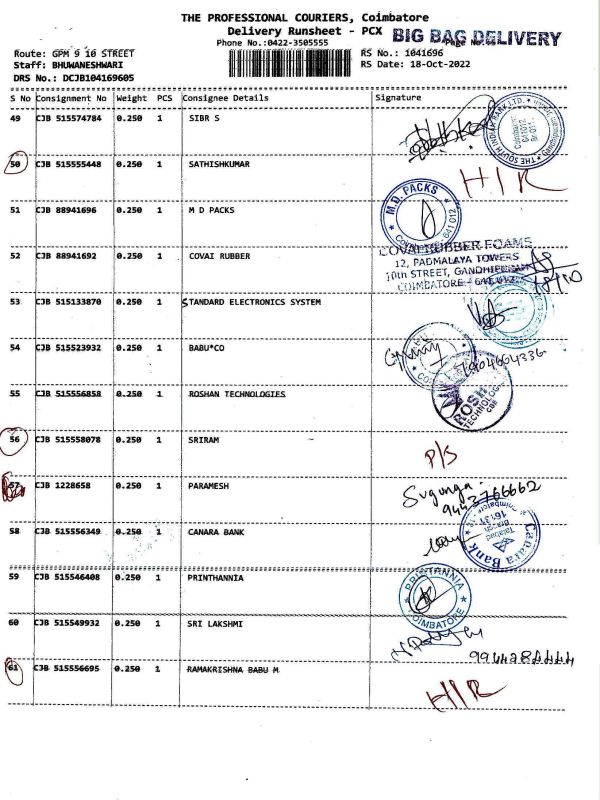 THE PROFESSIONAL COURIERS, Coimbatore
Delivery Runsheet - PCX
BIG BAG DELIVERY
Phone No.:0422-3505555
Route: GPM 9 10 STREET
RS No.: 1041696
Staff: BHUWANESHWARI
RS Date: 18-Oct-2022
DRS No.: DCJB104169605
S No Consignment No Weight PCS Consignee Details Signature
49 CJB 515574784 0.250 1 SIBR S
THE SOUTH INDIAN BANK LTD.
Coimbatore
641012
50 CJB 515555448 0.250 1 SATHISHKUMAR
HIR
51 CJB 88941696 0.250 1 M D PACKS
M.D. PACKS
641 012
52 CJB 88941692 0.250 1 COVAI RUBBER
COVAI RUBBER FOAMS
12, PADMALAYA TOWERS
10th STREET, GANDHIPURAM
COIMBATORE - 641 012
18/10
53 CJB 515133870 0.250 1 STANDARD ELECTRONICS SYSTEM
54 CJB 515523932 0.250 1 BABU*CO
55 CJB 515556858 0.250 1 ROSHAN TECHNOLOGIES
56 CJB 515558078 0.250 1 SRIRAM
P/S
57 CJB 1228658 0.250 1 PARAMESH
Sugunga
9443766662
58 CJB 515556349 0.250 1 CANARA BANK
Canara Bank
59 CJB 515546408 0.250 1 PRINTHANNIA
PRINTHANNIA
COIMBATORE
60 CJB 515549932 0.250 1 SRI LAKSHMI
61 CJB 515556695 0.250 1 RAMAKRISHNA BABU M
HIR